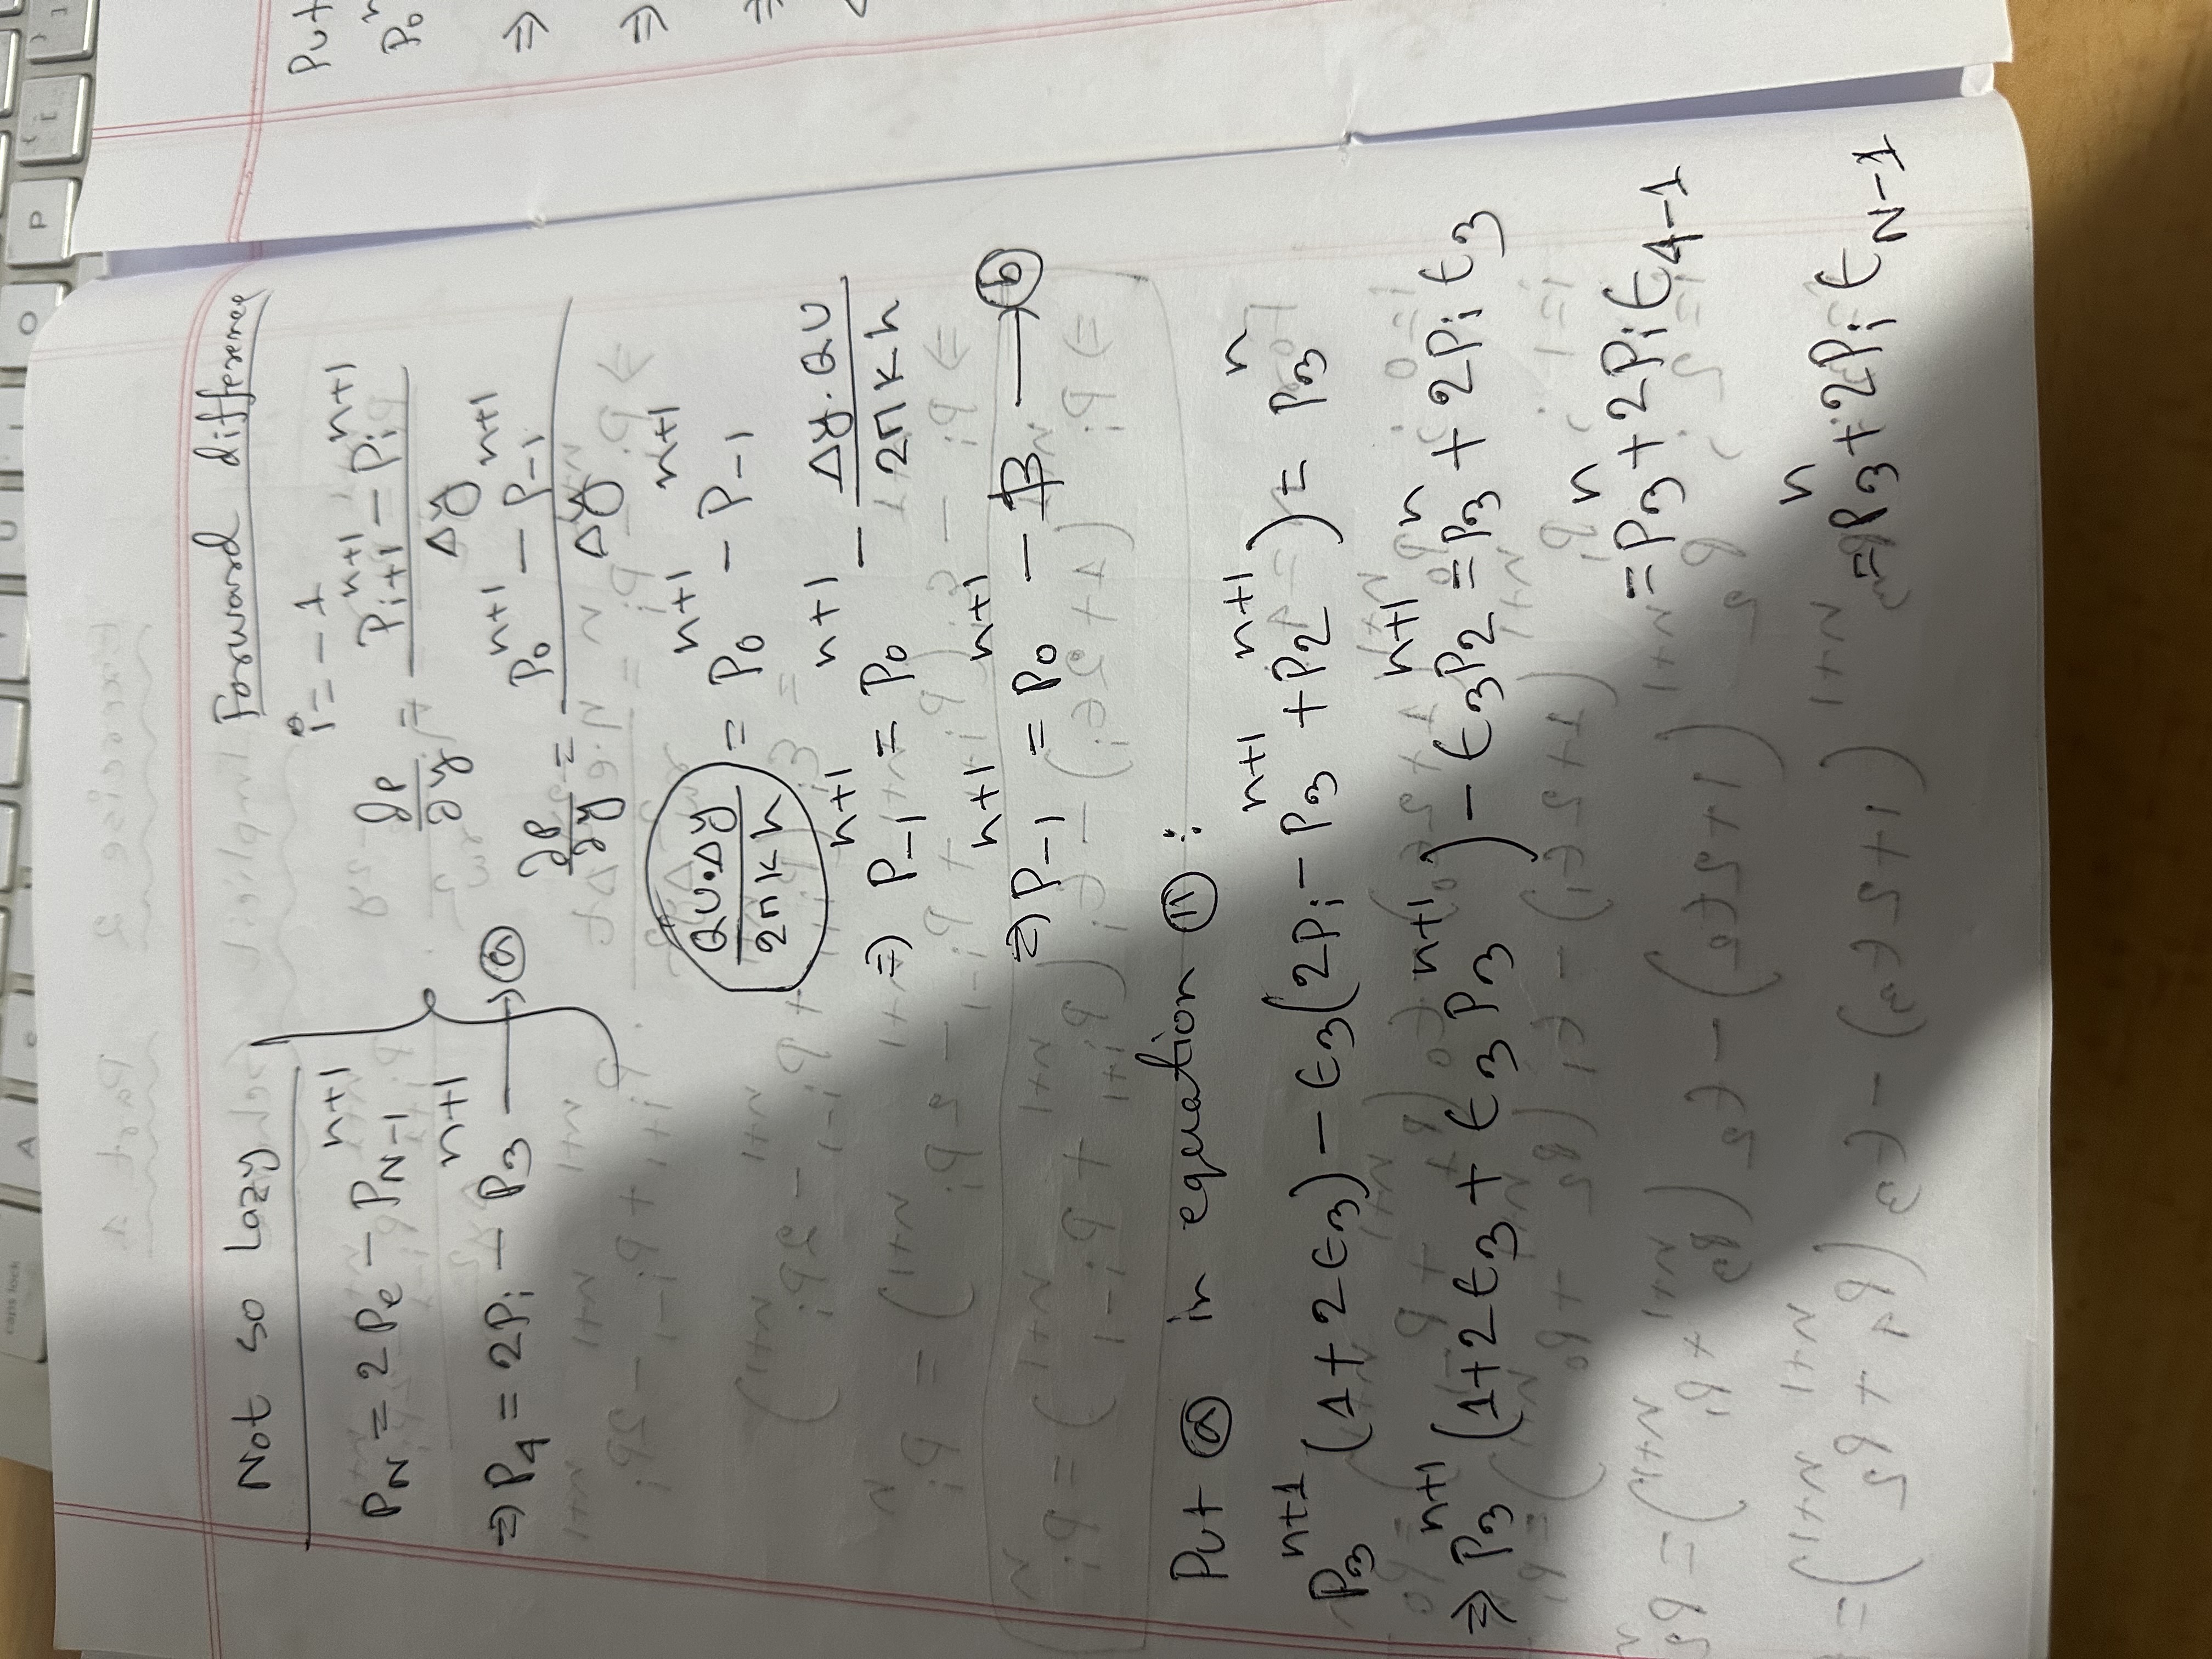 caps lock
A
U
I
O
P
{ [
} ]
Not so Lazy
P_N = 2P_e - P_{N-1}^{n+1}
⇒ P_4 = 2P_i - P_3^{n+1} → ⓐ
Forward difference
i = -1
∂P/∂y = (P_{i+1}^{n+1} - P_i^{n+1})/Δy
∂P/∂y = (P_0^{n+1} - P_{-1}^{n+1})/Δy
QU·Δy/2πkh = P_0^{n+1} - P_{-1}^{n+1}
⇒ P_{-1}^{n+1} = P_0^{n+1} - Δy·QU/2πkh
⇒ P_{-1}^{n+1} = P_0^{n+1} - β → ⓑ
Put ⓐ in equation ⑪ :
P_3^{n+1} (1+2ϵ_3) - ϵ_3(2P_i - P_3^{n+1} + P_2^{n+1}) = P_3^n
⇒ P_3^{n+1} (1+2ϵ_3 + ϵ_3 P_3^{n+1}) - ϵ_3P_2^{n+1} = P_3^n + 2P_i ϵ_3
= P_3^n + 2P_i ϵ_{4-1}
= P_3^n + 2P_i ϵ_{N-1}
Put
P_0^n
⇒
⇒
⇒